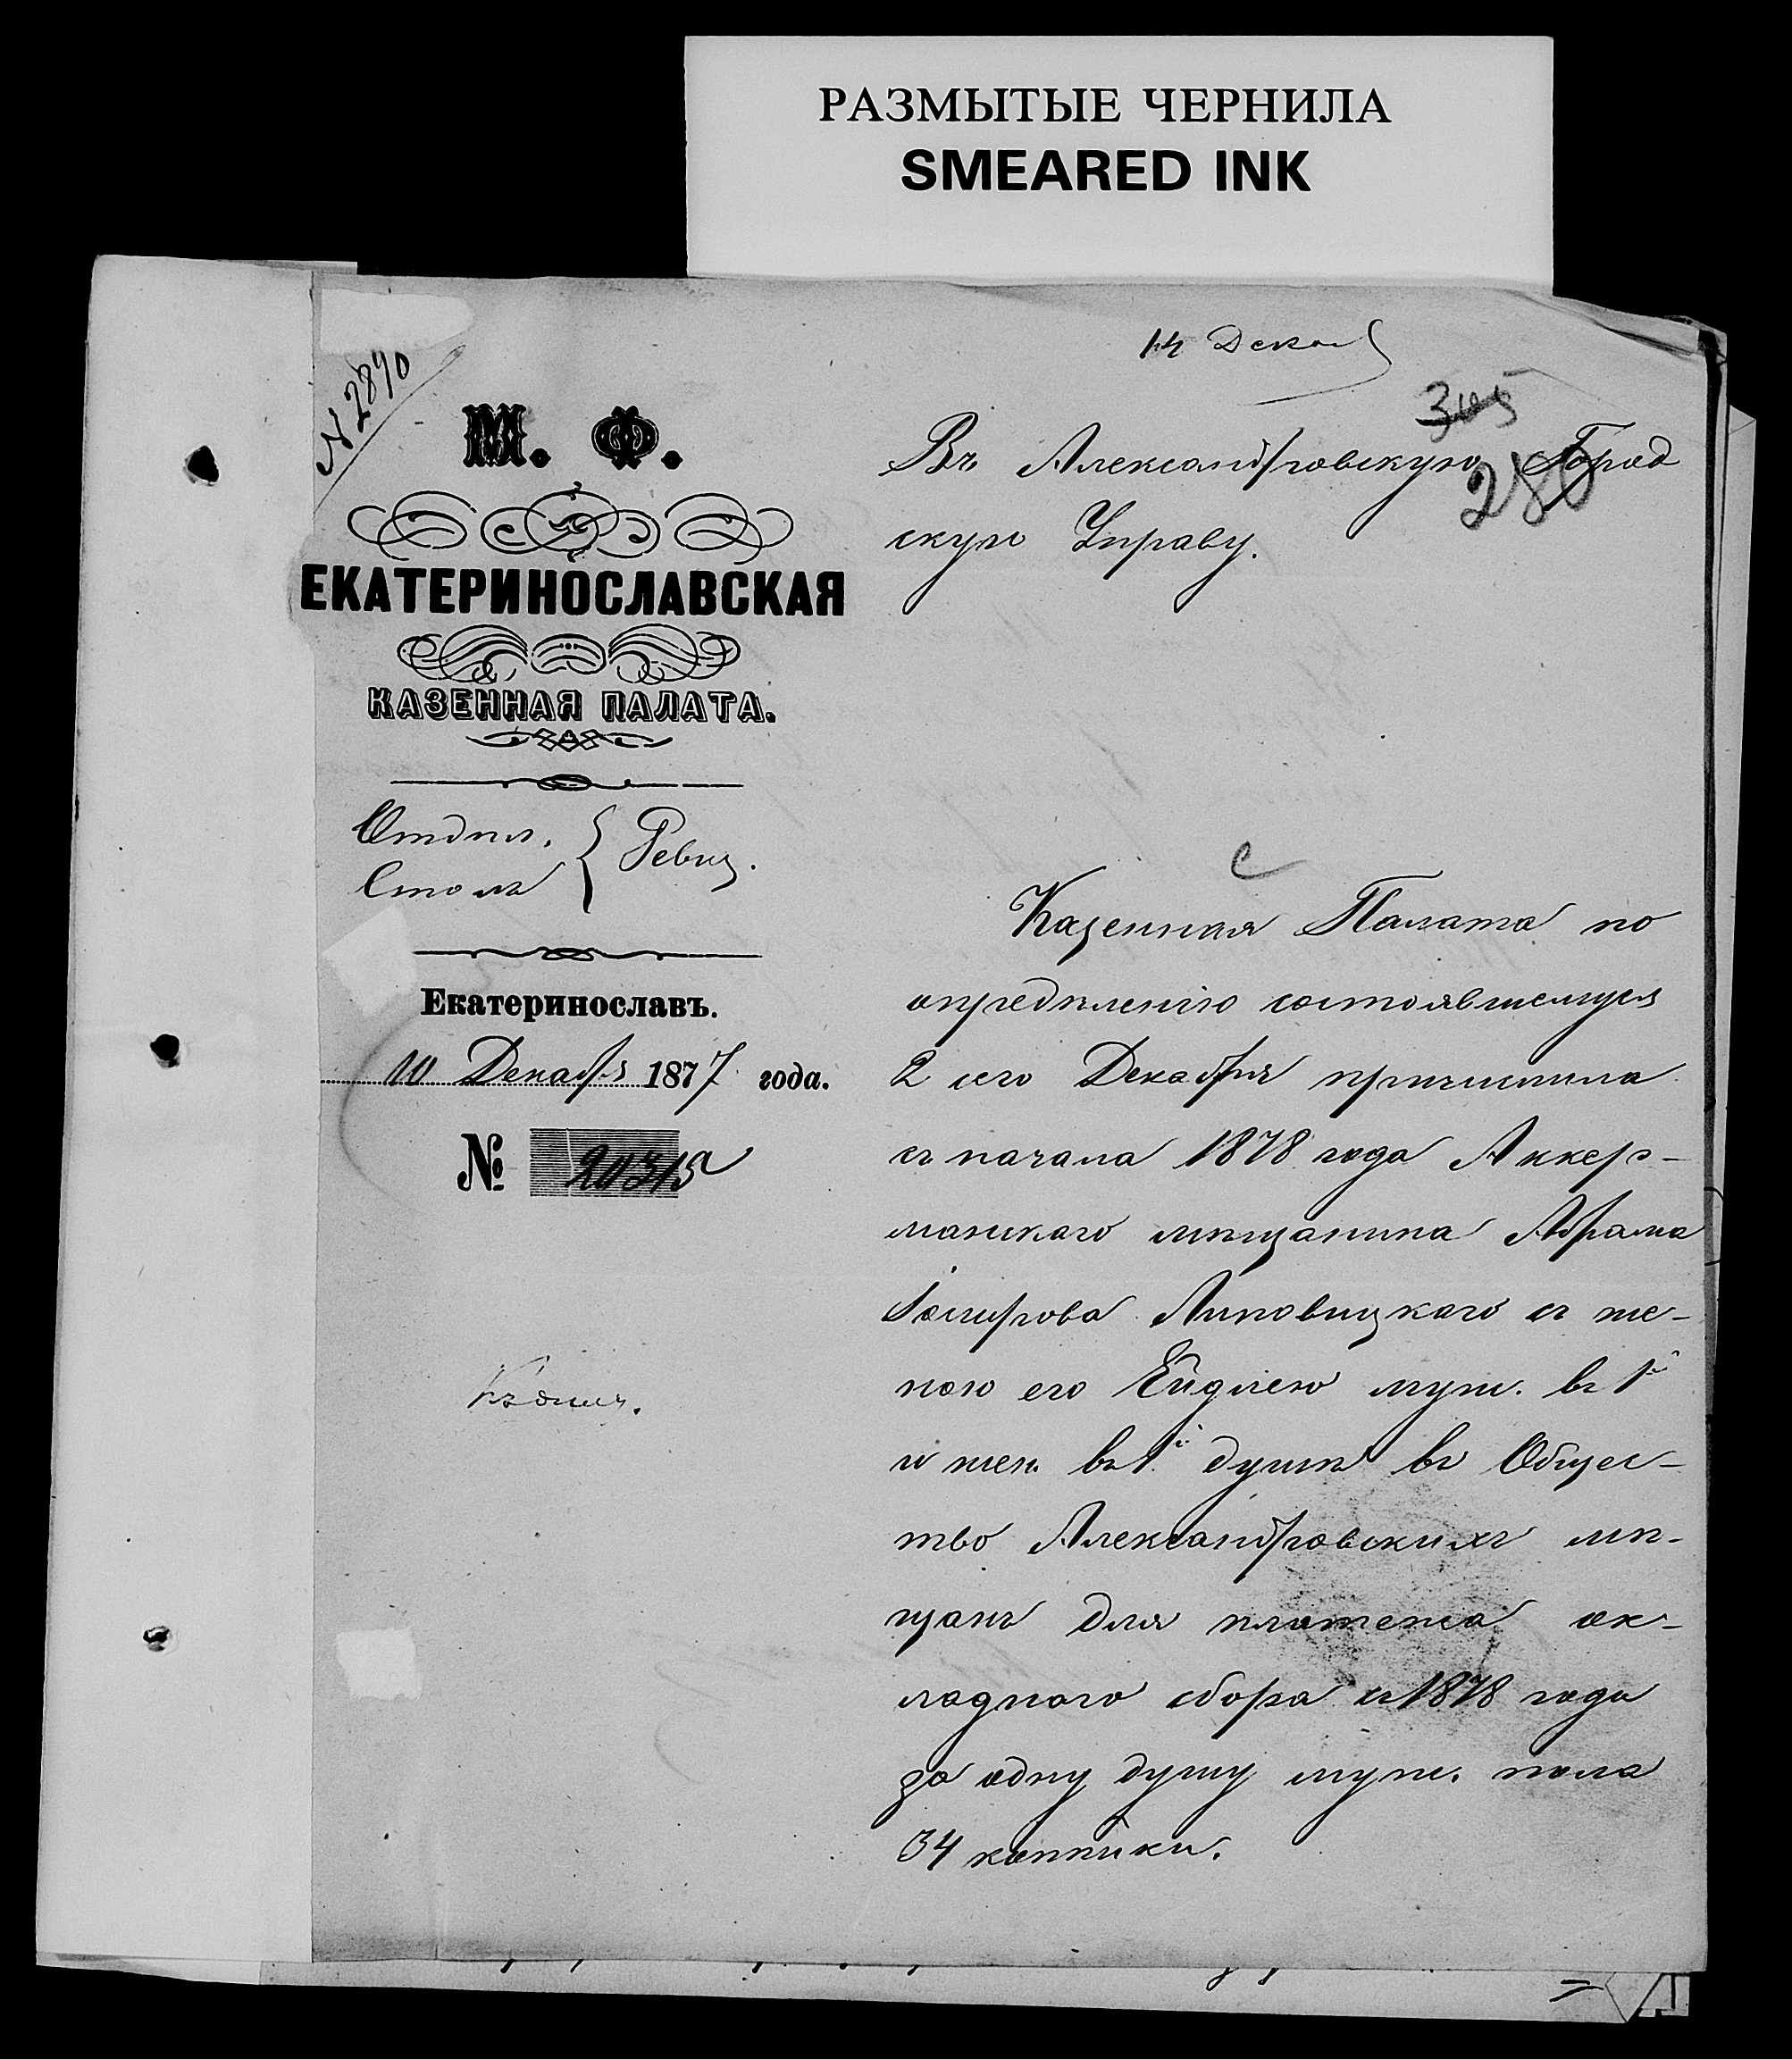 РАЗМЫТЫЕ ЧЕРНИЛА
SMEARED INK
14 Декаб
N 2890
305
280
М. Ф.
ЕКАТЕРИНОСЛАВСКАЯ
КАЗЕННАЯ ПАЛАТА.
Отдѣл.
Столъ
Ревиз.
Екатеринославъ.
10 Декабря 1877 года.
№ 20315
Къ дѣлу.
Въ Александровскую Город
скую Управу.
Казенная Палата по
опредѣленію состоявшемуся
2 сего Декабря причислила
съ начала 1878 года Аккер-
манскаго мѣщанина Абрама
Липовицкаго съ же-
ною его Ейдлею муж. въ 1й
и жен. въ 1й душѣ въ Общес-
тво Александровскихъ мѣ-
щанъ для платежа ок-
ладнаго сбора съ 1878 года
за одну душу муж. пола
34 копѣйки.